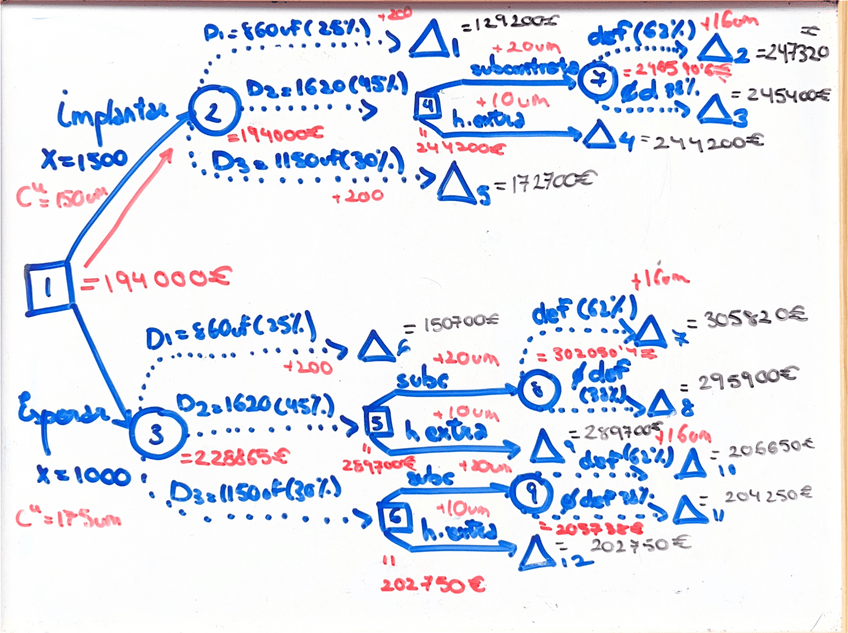 D1=860uf(25%) +200 △1 =129200€
+20um def(62%) +16um △2 =247320
implantar 2 D2=1620(45%) subcontrata 7
4 +10um ød 38% △3 =245400€
X=1500 =194000€ h.extra △4 =244200€
244200€
D3=1150uf(30%)
Cu=150um +200 △5 =172700€
1 =194000€
+16um
D1=860uf(25%) =150700€ def(62%) △7 =305820€
+200 △6
+20um
subc 8 ø def =295900€
Esperar D2=1620(45%) (38%) △8
3 5 +10um
=228865€ h.extra △9 =289700€ +16um
X=1000 289700€ +20um def(62%) △10 =206650€
D3=(1150uf(30%) subc 9 ø def 38% =204250€
Cu=175um 6 +10um △11
h.extra △12 =202750€
202750€